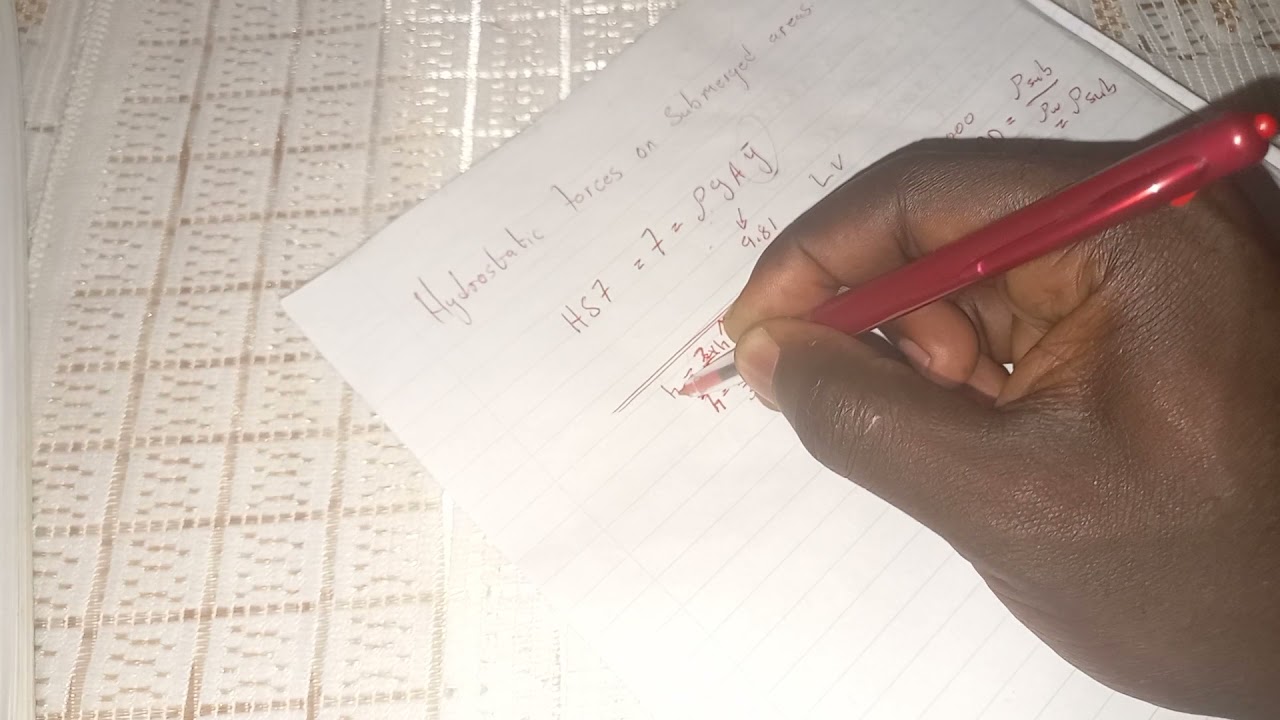 Hydrostatic forces on submerged areas.
HSF = F = ρgAȳ
9.81
LV
000
D = ρsub
ρw
= ρsub
h = 
h =